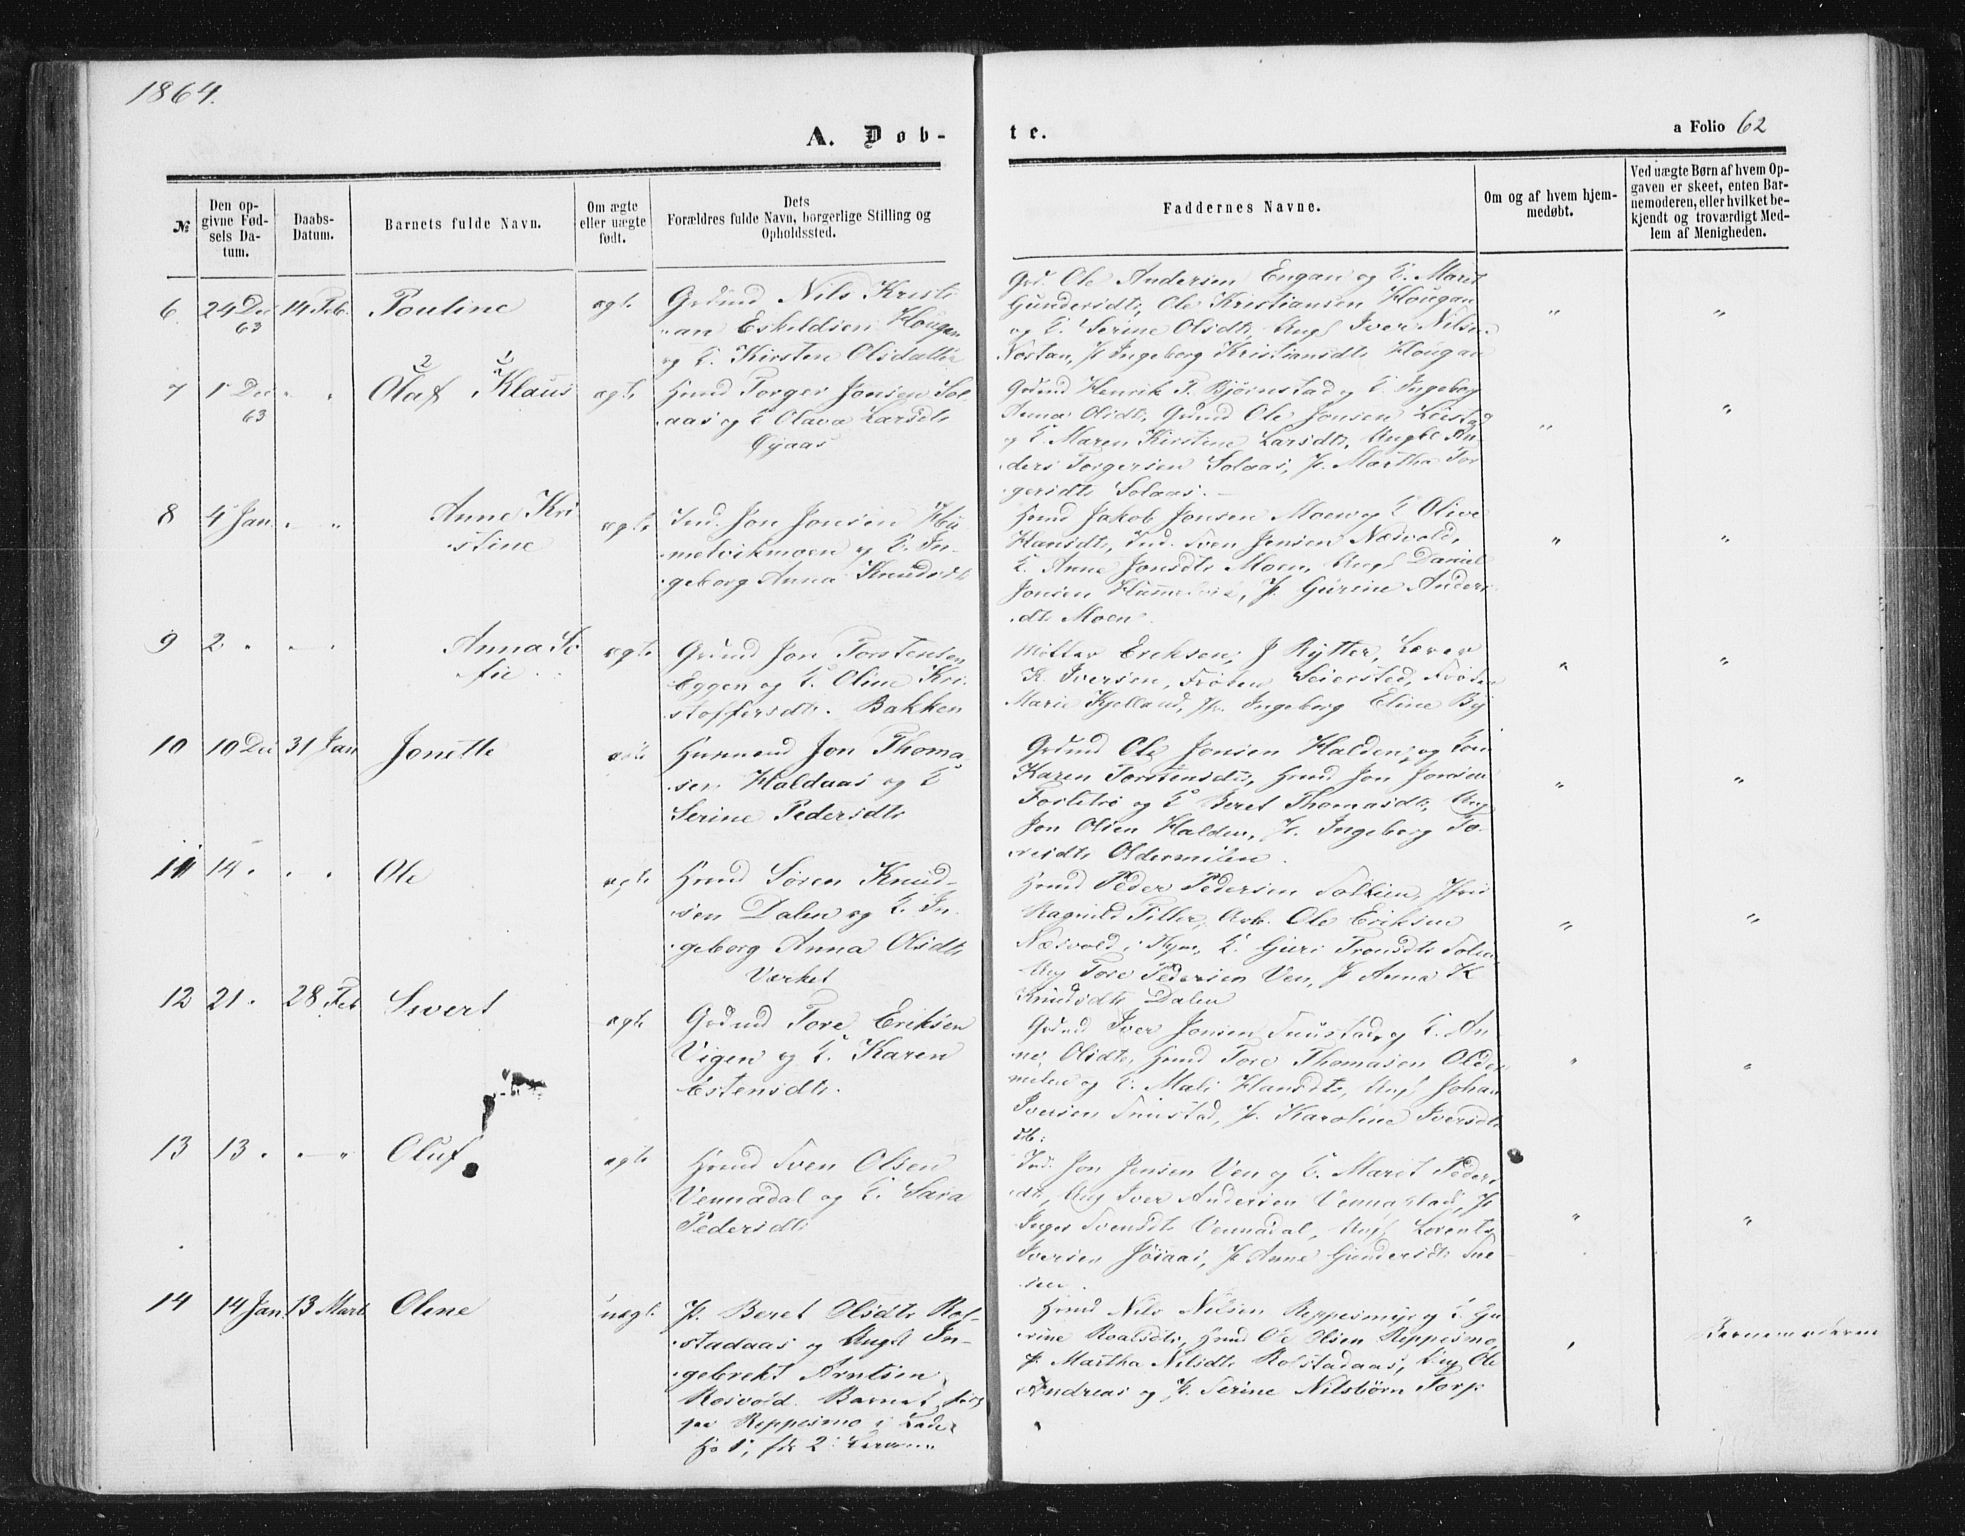 1864.
A. Døb-
te.
a Folio 62
№
Den op-
givne Fød-
sels Da-
tum.
Daabs-
Datum.
Barnets fulde Navn.
Om ægte
eller uægte
født.
Dets
Forældres fulde Navn, borgerlige Stilling og
Opholdssted.
Faddernes Navne.
Om og af hvem hjem-
medøbt.
Ved uægte Børn af hvem Op-
gaven er skeet, enten Bar-
nemoderen, eller hvilket be-
kjendt og troværdigt Med-
lem af Menigheden.
6 24 Dec 63 14 Feb. Pauline ægte
Grdmd Nils Kristi
an Eskildsen Hougan
og E. Kirsten Olsdatter
Grd. Ole Andersen Engan og E. Marit
Gundersdtr, Ole Kristiansen Hougan
og E. Serine Olsdtr, Ungk Iver Nilsen
Nostan, P. Ingeborg Kristiansdtr Hougan
" "
7 1 Dec 63 " " Olaf Klaus ægte
2 1
Hmd Torger Jonsen Sol
aas og E Olava Larsdtr
Øyaas
Grdmd Henrik P. Bjørnstad og E. Ingeborg
Anna Olsdtr, Grdmd Ole Jonsen
og E. Maren Kirstine Larsdtr, Ungk An
ders Torgersen Solaas, P. Martha Tor
gersdtr Solaas.
" "
8 4 Jan. " " Anne Kri
stine ægte
Ind. Jon Jonsen Hu
melvikmoen og E. In
geborg Anna Knudsdtr
Hmd Jakob Jonsen Moen og E Olive
Hansdtr, Ind. Sven Jensen Næsvold,
E. Anne Jonsdtr Moen, Ungk Daniel
Jonsen Hummelvik, P. Gurine Anders
dtr Moen.
" "
9 2 " " " Anna So
fie ægte
Grdmd Jon Torstensen
Eggen og E. Oline Kri
stoffersdtr. Bakken
Møller Eriksen, J Rytter, Lærer
K. Iversen, Frøken Seiersted, Frøken
Marie Kjelland, P. Ingeborg Eline By
" "
10 10 Dec 31 Jan Jonette ægte
Husmand Jon Thoma
sen Haldaas og E
Serine Pedersdtr
Grdmd Ole Jonsen Halden og
Karen Torstensdtr, Hmd Jon Jonsen
og E Beret Thomasdtr, Ung
Jon Olsen Halden, P. Ingeborg To
resdtr Oldermelen.
" "
11 14 " " " Ole ægte
Hmd Søren Knud
sen Dalen og E. In
geborg Anna Olsdtr
Værket
Hmd Peder Pedersen
Ragnild Tiller, Arb. Ole Eriksen
Næsvold, E. Guri Trondsdtr
Ung Tore Pedersen Ven, P Anna K
Knudsdtr Dalen
" "
12 21 " 28 Feb Sivert ægte
Grdmd Tore Eriksen
Vigen og E. Karen
Estensdtr.
Grdmd Iver Jonsen og E. An
ne Olsdtr, Hmd Tore Thomasen Older
melen og E. Mali Hansdtr, Ungk Johan
Iversen, P. Karoline Iversdtr
ib:
" "
13 13 " " " Oluf ægte
Hmd Sven Olsen
Vennadal og E. Sara
Pedersdtr
Ind. Jon Jensen Ven og E. Marit Peders
dtr, Ung Iver Andersen Vennastad, P
Inger Svensdtr Vennadal, Ungk Lorents
Iversen, P. Anne Gundersdtr
" "
14 14 Jan. 13 Marts Oline uægte
P. Beret Olsdtr Rol
stadaas og Ungk In
gebrekt Arntsen
Rosvold. Barnet
paa Reppesmo i
1, 2
Hmd Nils Nilsen Reppesmyr og E Gu
rine Roaldsdtr, Hmd Ole Olsen Reppesmo,
P. Martha Nilsdtr Rolstadaas, Ung Ole
Andreas og P. Serine Nilsbørn Torp
" Barnemoderen